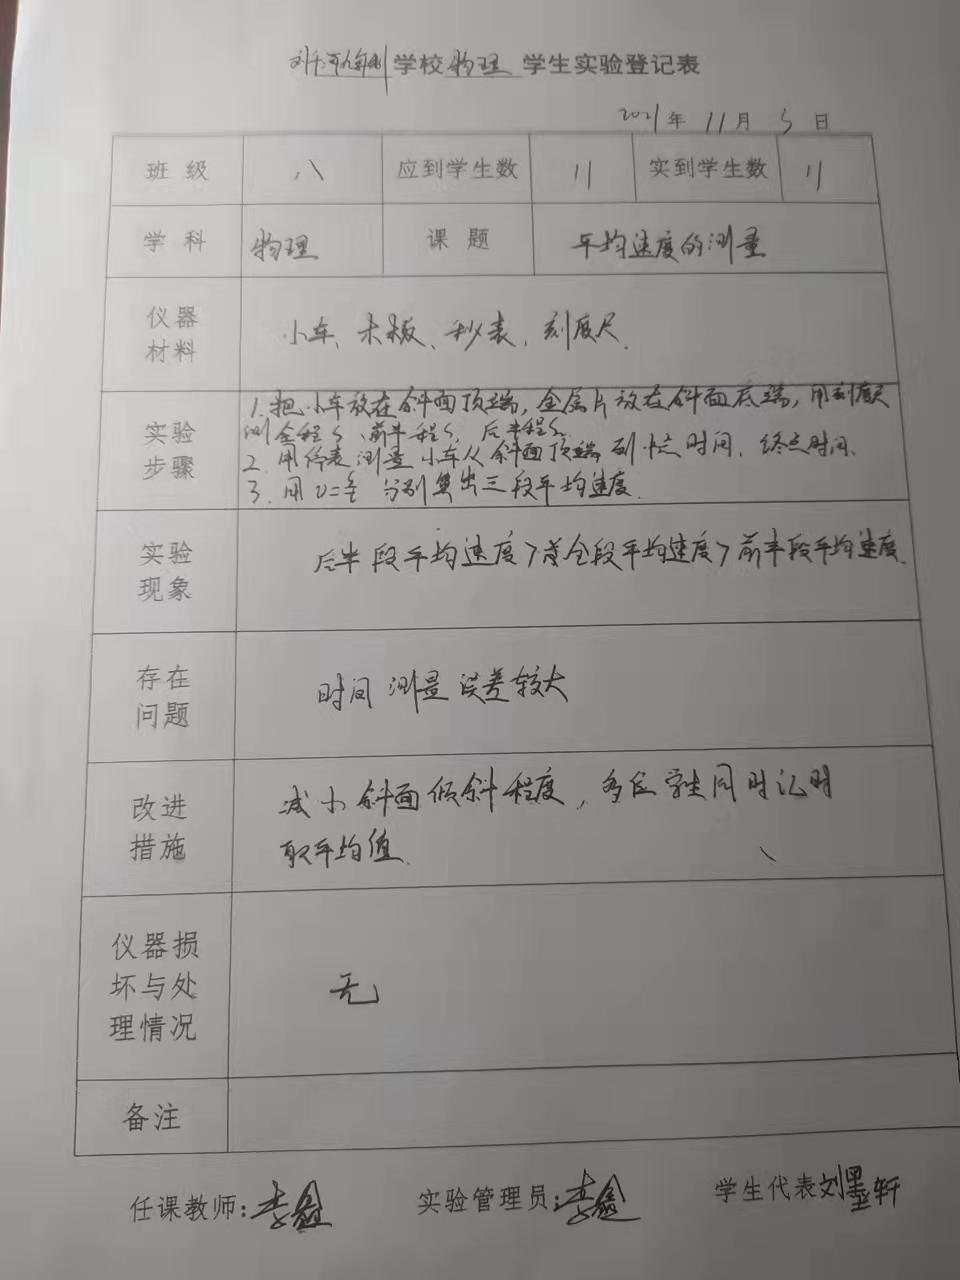 学校 物理 学生实验登记表
2021年 11月 5日
班级 八 应到学生数 11 实到学生数 11
学科 物理 课题 平均速度的测量
仪器材料 小车、木板、秒表、刻度尺.
1.把小车放在斜面顶端,金属片放在斜面底端,用刻度尺
实验步骤 测全程S、前半程S₁、后半程S₂
2.用停表测量小车从斜面顶端到中点时间、终点时间、
3.用v=s/t 分别算出三段平均速度.
实验现象 后半段平均速度>全段平均速度>前半段平均速度.
存在问题 时间测量误差较大
改进措施 减小斜面倾斜程度,多位学生同时记时
取平均值.
仪器损坏与处理情况 无
备注
任课教师:李鑫 实验管理员:李鑫 学生代表 刘墨轩